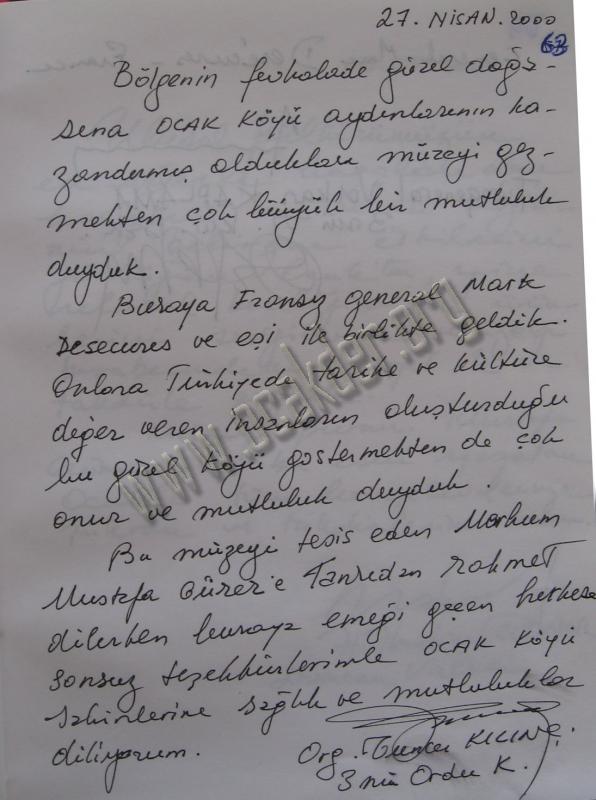 27. NİSAN. 2000
63
Bölgenin fevkalade güzel doğa-
sına OCAK KÖYÜ aydınlarının ka-
zandırmış oldukları müzeyi gez-
mekten çok büyük bir mutluluk
duyduk.
Buraya Fransız general Mark
Desecures ve eşi ile birlikte geldik.
Onlara Türkiyede tarihe ve kültüre
değer veren insanların oluşturduğu
bu güzel köyü göstermekten de çok
onur ve mutluluk duyduk.
Bu müzeyi tesis eden Merhum
Mustafa Gürer'e Tanrıdan rahmet
dilerken buraya emeği geçen herkese
sonsuz teşekkürlerimle OCAK KÖYÜ
sakinlerine sağlık ve mutluluklar
diliyorum.
Org. Tuncer KILINÇ.
3 ncü Ordu K.
www.ocakder.org